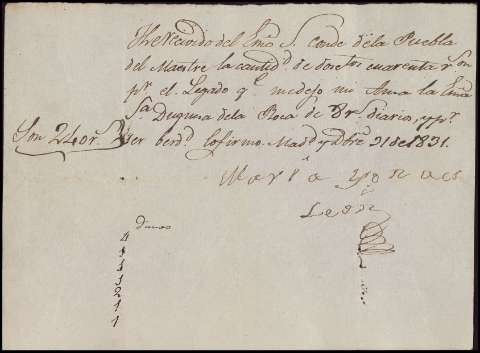 He Recivido del Exmo S. conde dela Puebla
del Maestre la cantidd de doscitos cuarenta rs. son
pr el Legado qe me dejo mi Ama la Exma
Sa Duquesa dela Roca de 8 rs. diarios, y pr.
Son 240 rs. ser berdd. lo firmo. Madd y Dbre 31 de 1831.
Maria
Leon